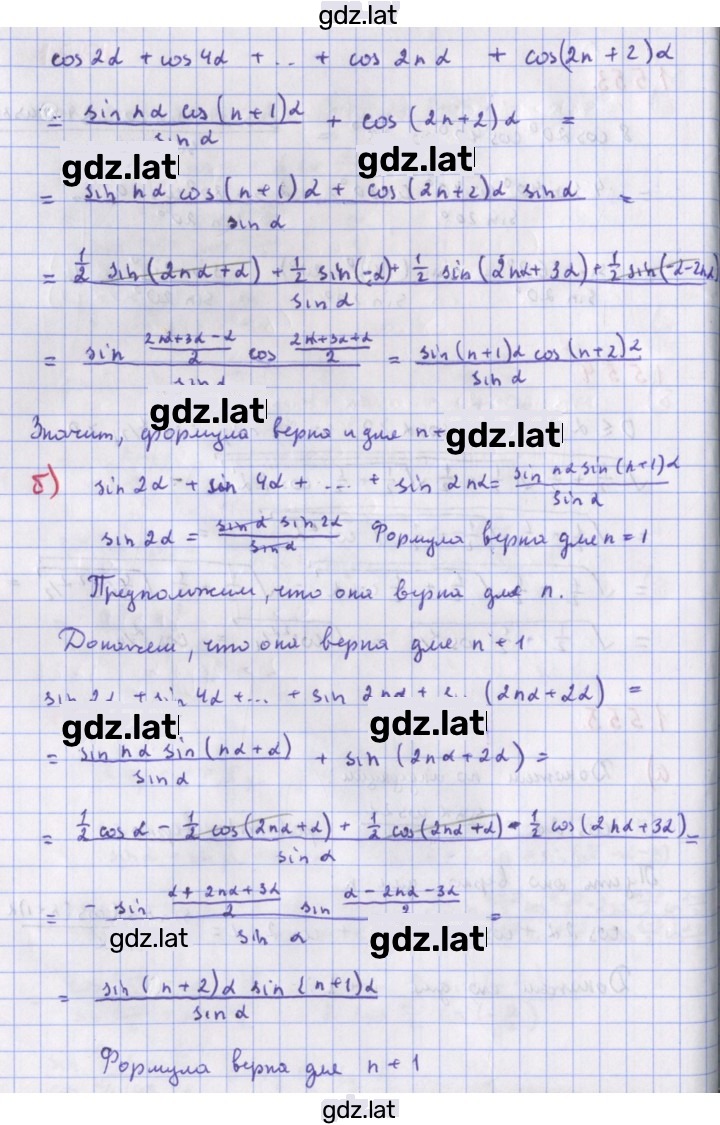 gdz.lat
cos 2α + cos 4α + .. + cos 2nα + cos(2n+2)α
= \frac{sin nα cos(n+1)α}{sin α} + cos(2n+2)α =
gdz.lat gdz.lat
= \frac{sin nα cos(n+1)α + cos(2n+2)α sin α}{sin α} =
= \frac{\frac{1}{2} sin(2nα+α) + \frac{1}{2} sin(-α) + \frac{1}{2} sin(2nα+3α) + \frac{1}{2} sin(-α-2nα)}{sin α}
= \frac{sin \frac{2nα+3α-α}{2} cos \frac{2nα+3α+α}{2}}{sin α} = \frac{sin(n+1)α cos(n+2)α}{sin α}
gdz.lat gdz.lat
Значит, формула верна и для n+
б) sin 2α + sin 4α + ... + sin 2nα = \frac{sin nα sin(n+1)α}{sin α}
sin 2α = \frac{sin α sin 2α}{sin α} Формула верна для n = 1
Предположим, что она верна для n.
Докажем, что она верна для n+1
sin 2α + sin 4α + ... + sin 2nα + (2nα+2α) =
gdz.lat gdz.lat
= \frac{sin nα sin(nα+α)}{sin α} + sin(2nα+2α) =
= \frac{\frac{1}{2} cos α - \frac{1}{2} cos(2nα+α) + \frac{1}{2} cos(2nα+α) - \frac{1}{2} cos(2nα+3α)}{sin α} =
= \frac{- sin \frac{α+2nα+3α}{2} sin \frac{α-2nα-3α}{2}}{sin α} =
gdz.lat gdz.lat
= \frac{sin(n+2)α sin(n+1)α}{sin α}
Формула верна для n+1
gdz.lat